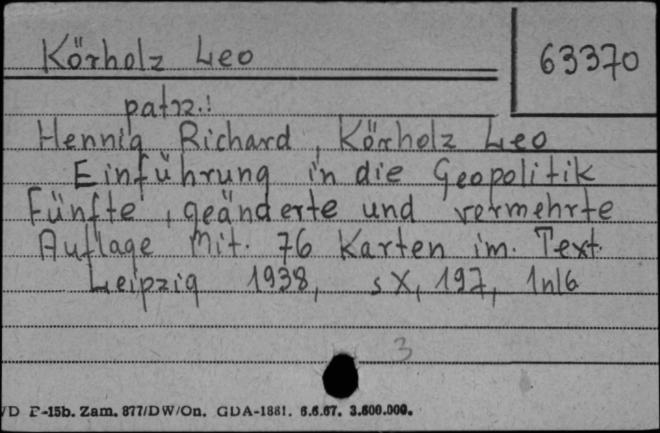 Körholz Leo
63370
patrz:
Hennig Richard, Körholz Leo
Einführung in die Geopolitik
Fünfte, geänderte und vermehrte
Auflage Mit. 76 Karten im. Text.
Leipzig 1938, s X, 197, 1nl6
3
D P-15b. Zam. 877/DW/On. GDA-1881. 6.6.67. 3.600.000.